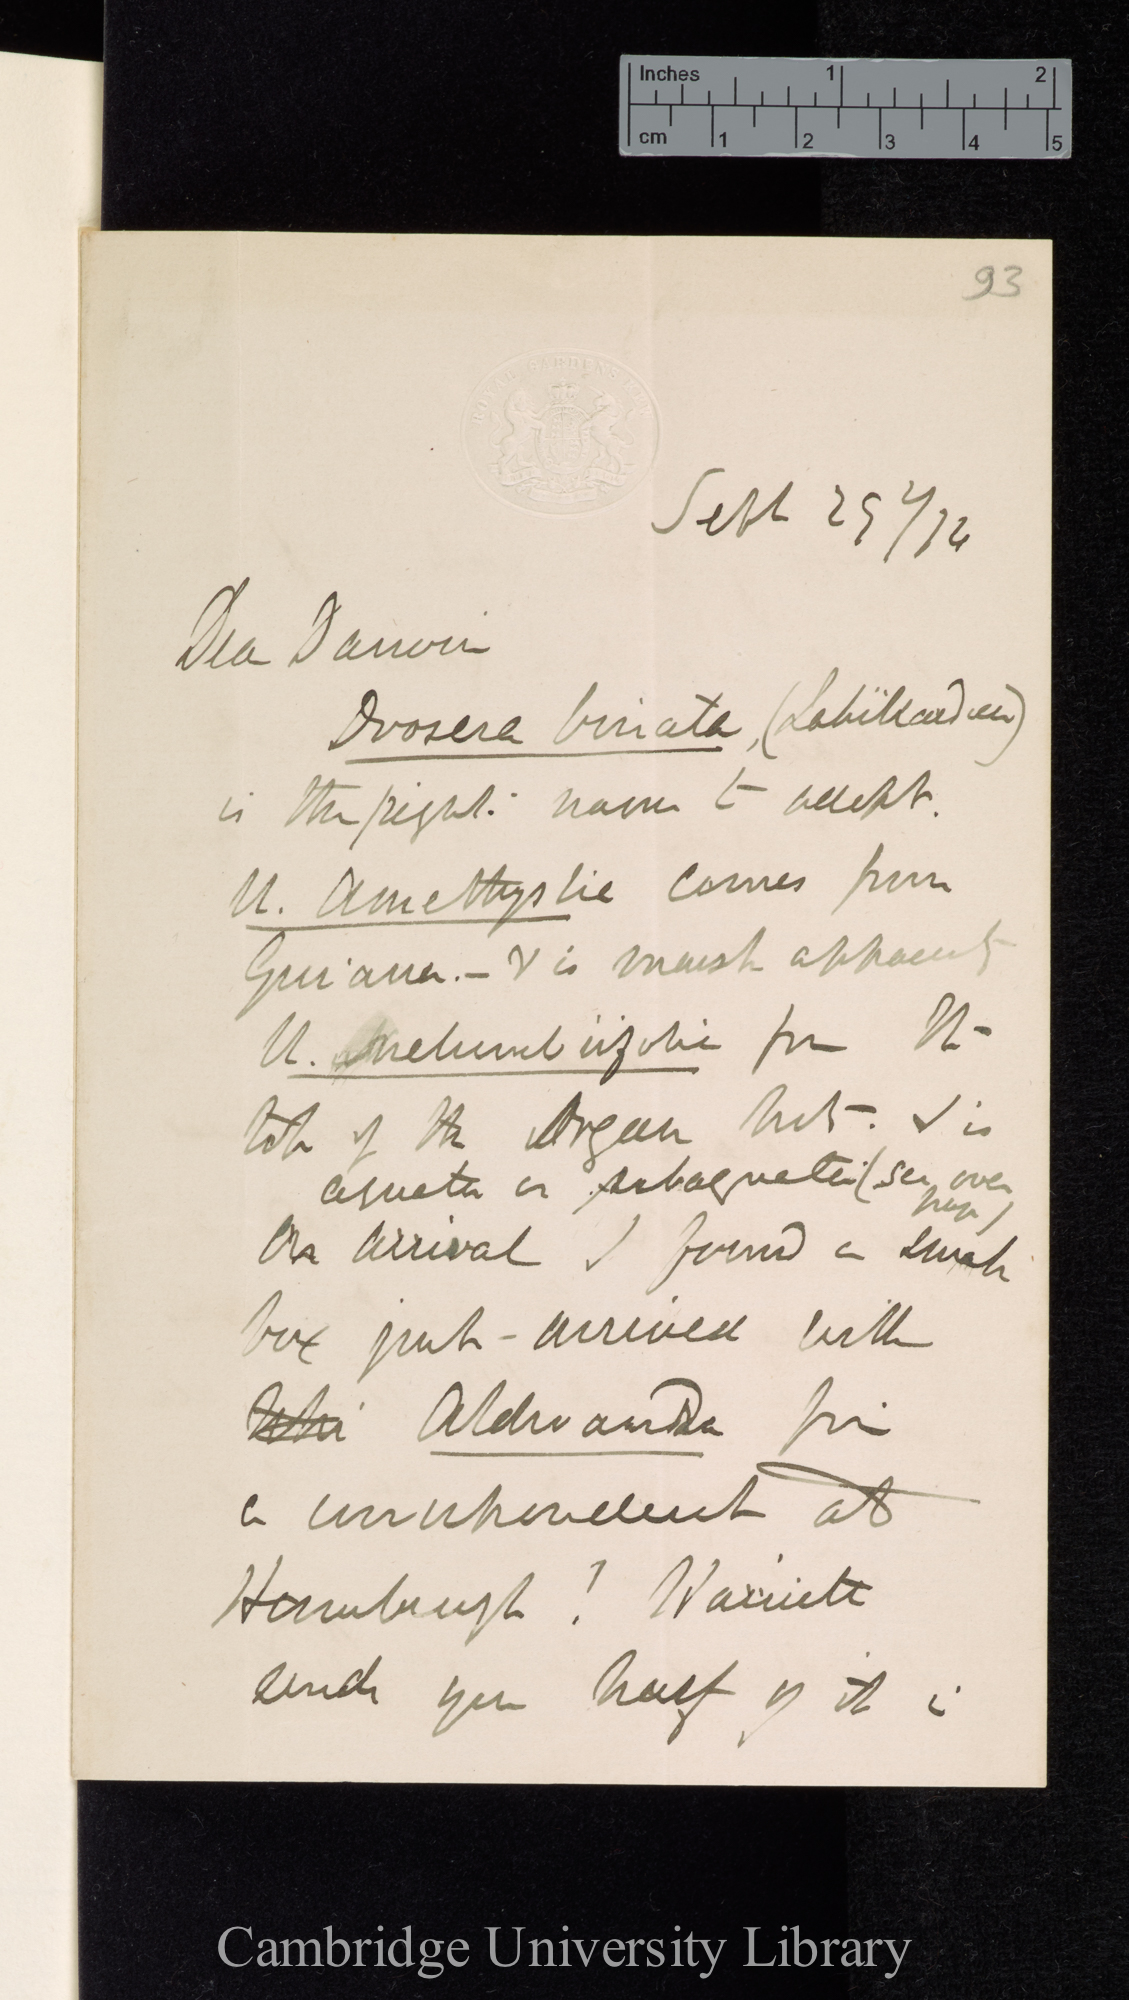 Inches 1 2
cm 1 2 3 4 5
93
ROYAL GARDENS KEW
Sept 29 /74
Dear Darwin
Drosera binata, (Labillardier)
is the right name to adopt.
U. Amethystie comes from
Guiana. – & is marsh apparently
U. nelumbiifolia from the
top of the Organ Mts. & is
aquatic or subaquatic (see over page)
On arrival I found a small
box just arrived with
Aldrovanda from
a correspondent at
send you half of it in
Cambridge University Library